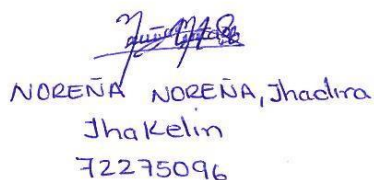 NOREÑA NOREÑA, Jhadira
Jhakelin
72275096